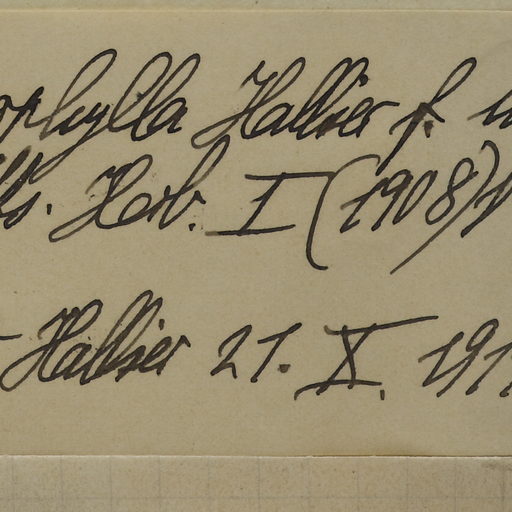 ophylla Hallier f.
Herb. I (1908)
Hallier 21. X. 191